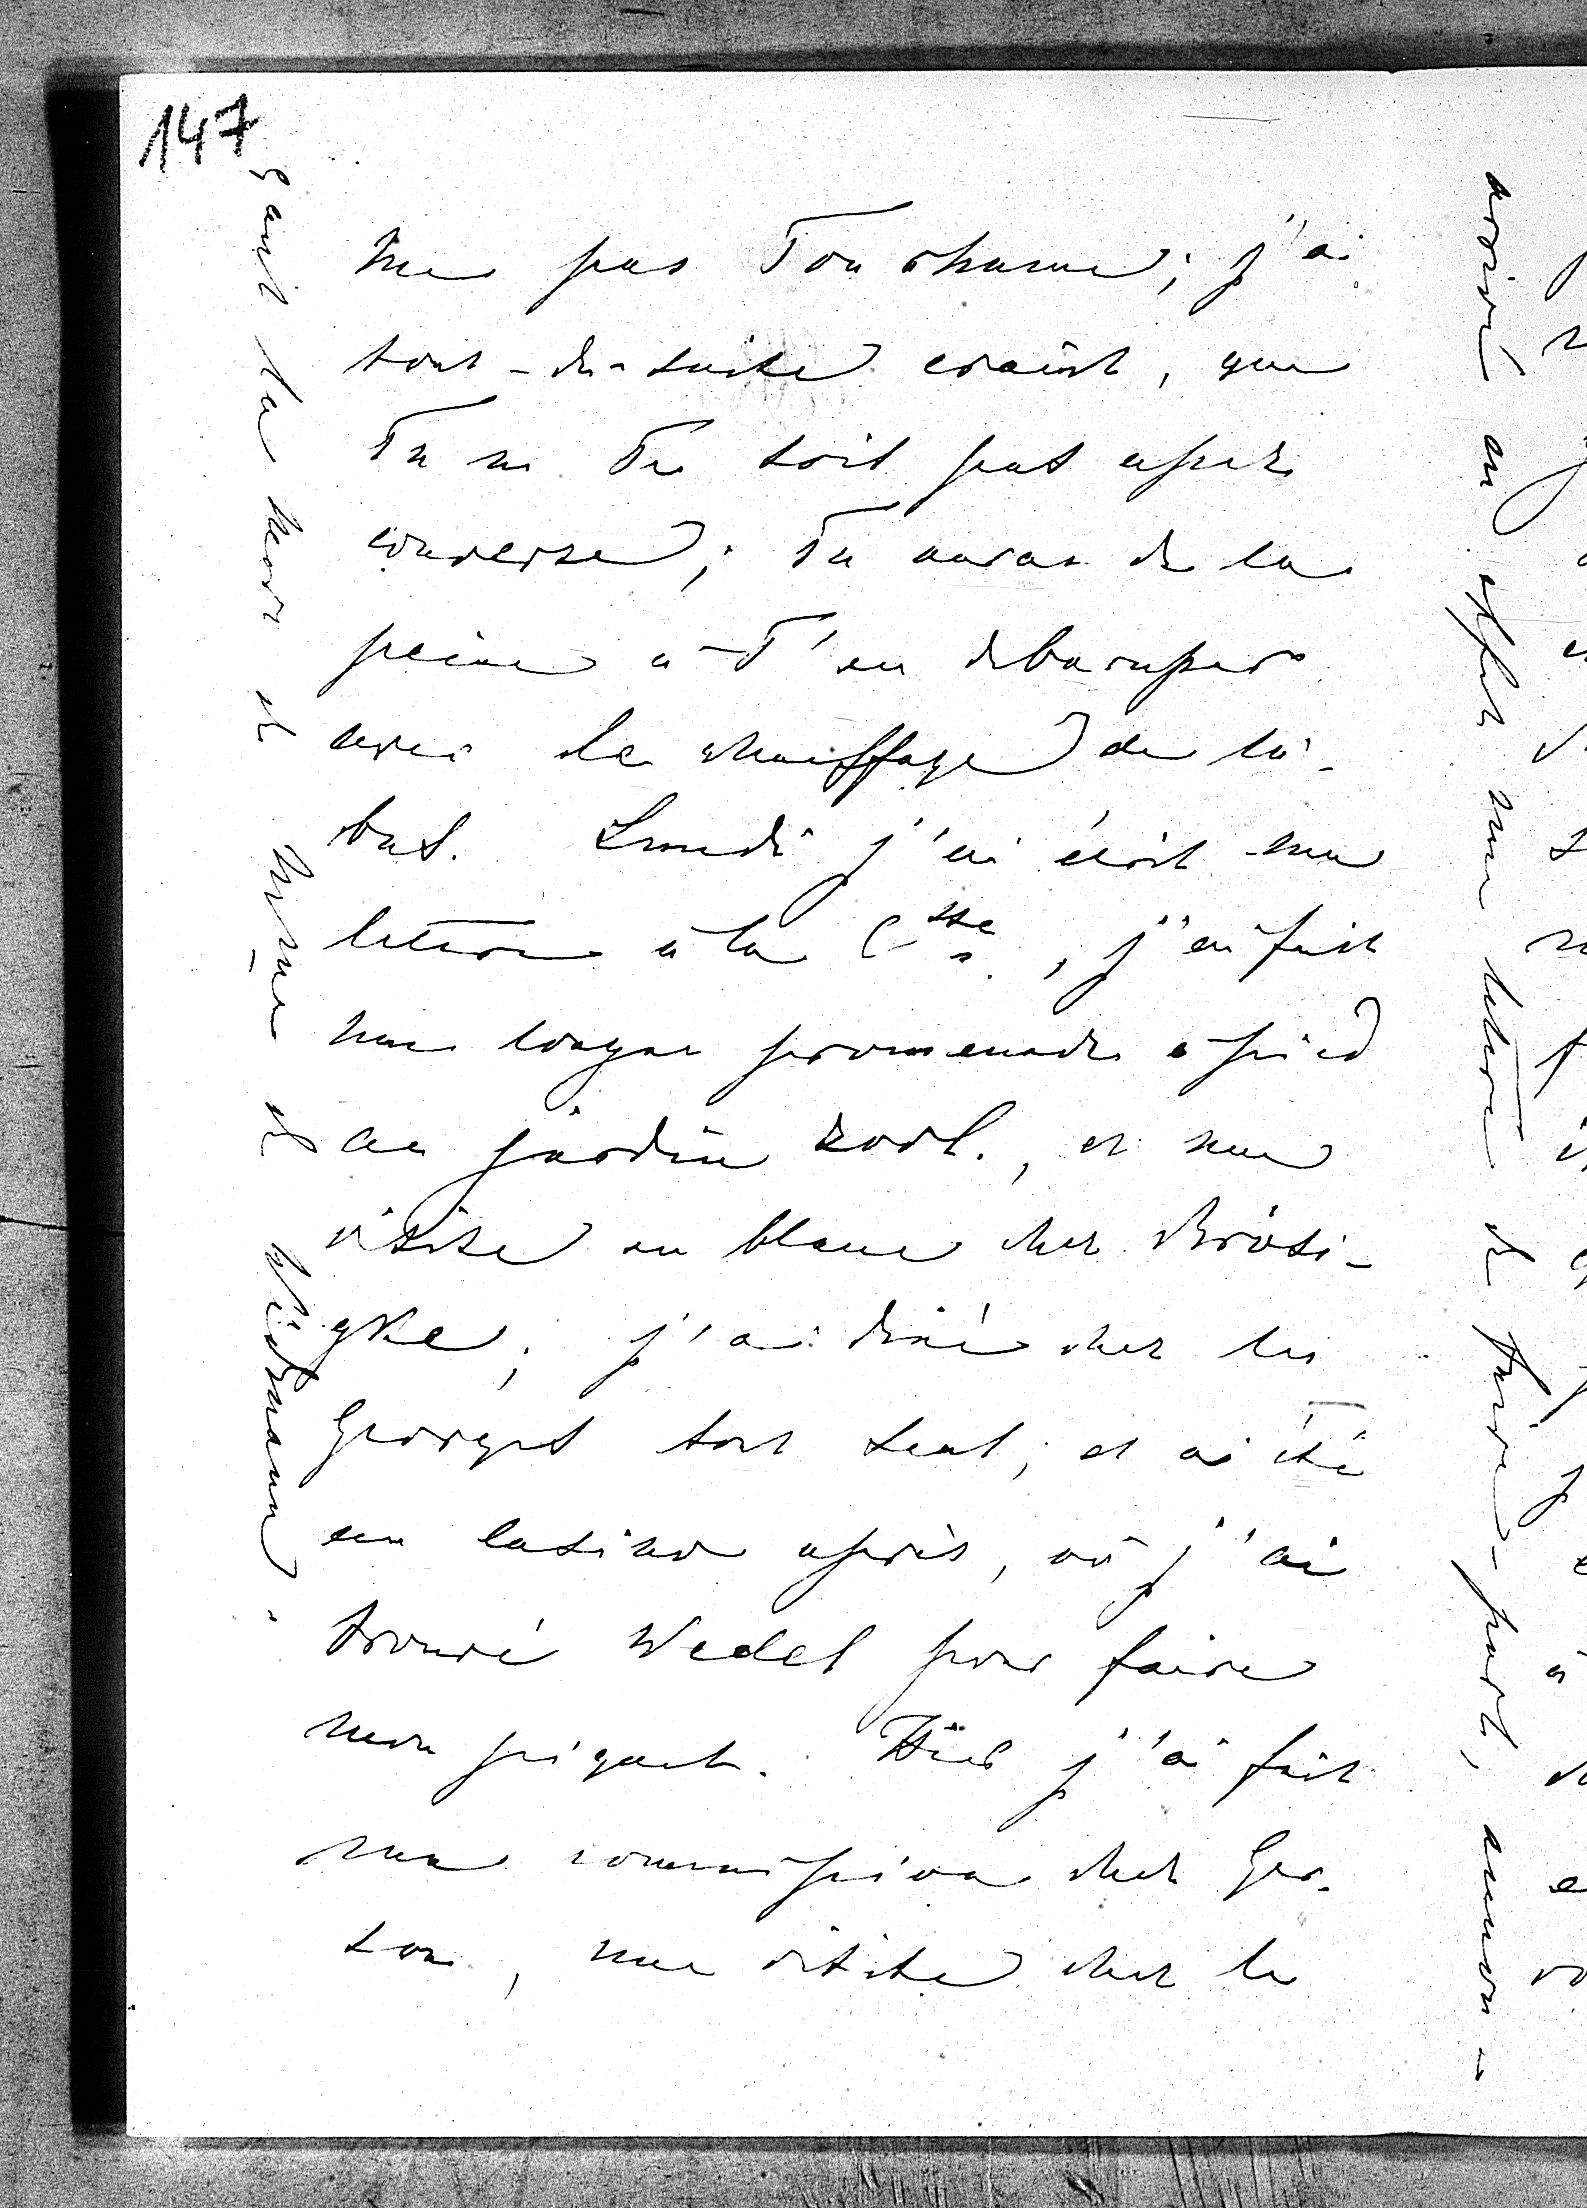 147
me pas Ton rhume; j'ai
tout-de-suite craint, que
Tu ne Te sois pas assez
couverte; Tu auras de la
peine à T'en debarasser
avec le chauffage de là-
bas. Lundi j'ai écrit une
lettre à la Csse, j'ai fait
une longue promenade à pied
au jardin zool., et une
visite en blanc chez Brösi-
gke; j'ai diné chez les
Georges tout seul, et ai été
au casino après, où j'ai
trouvé Wedel pour faire
mon piquet. Hier j'ai fait
une commission chez Ger-
son, une visite chez le
arrivé en effet une lettre de faire-part, annon-
çant la mort de Mme de Wiedmann.